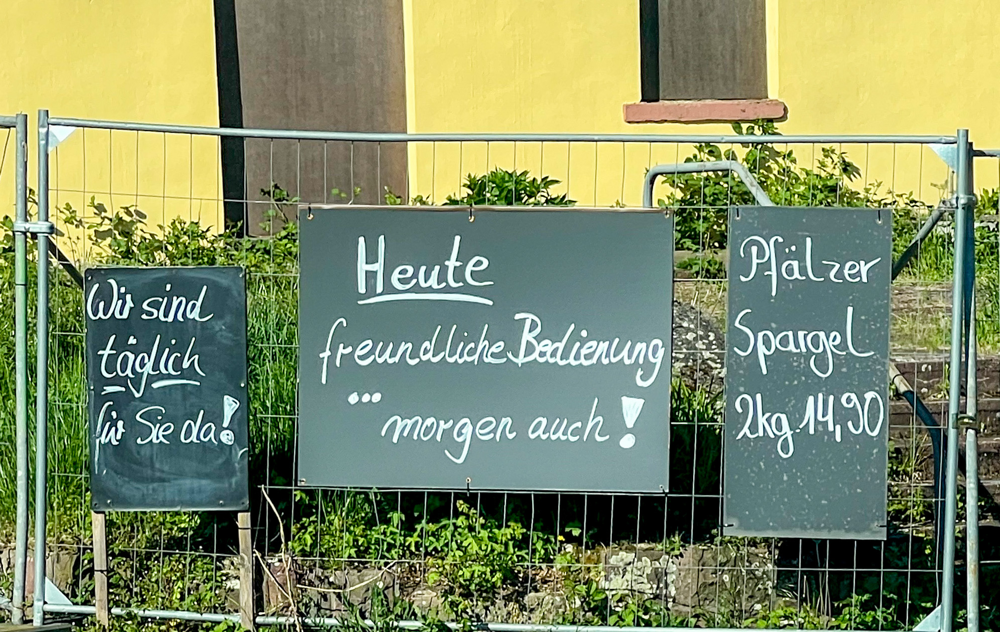 Wir sind
täglich
für Sie da!
Heute
freundliche Bedienung
... morgen auch!
Pfälzer
Spargel
2kg 14,90